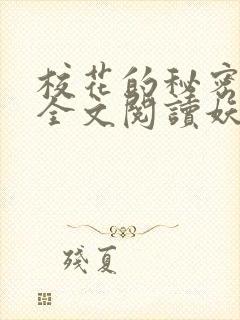 校花的秘密
全文閱讀妖
殘夏